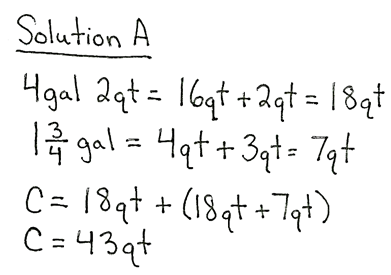 Solution A
4gal 2qt = 16qt + 2qt = 18qt
1 3/4 gal = 4qt + 3qt = 7qt
C = 18qt + (18qt + 7qt)
C = 43qt